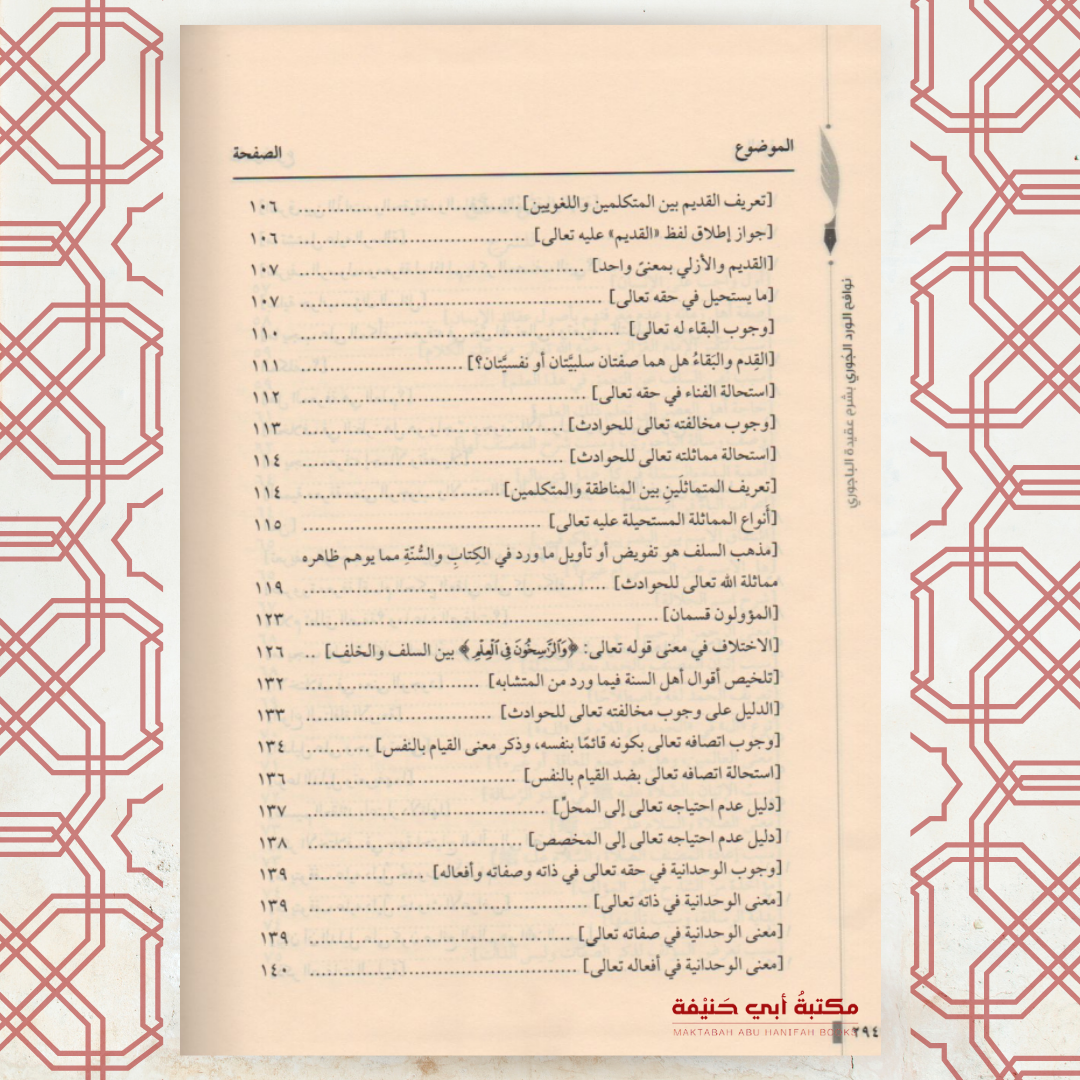 الموضوع الصفحة
[تعريف القديم بين المتكلمين واللغويين] ........ ١٠٦
[جواز إطلاق لفظ «القديم» عليه تعالى] ........ ١٠٦
[القديم والأزلي بمعنىً واحد] ........ ١٠٧
[ما يستحيل في حقه تعالى] ........ ١٠٧
[وجوب البقاء له تعالى] ........ ١١٠
[القِدم والبَقاءُ هل هما صفتان سلبيَّتان أو نفسيَّتان؟] ........ ١١١
[استحالة الفناء في حقه تعالى] ........ ١١٢
[وجوب مخالفته تعالى للحوادث] ........ ١١٣
[استحالة مماثلته تعالى للحوادث] ........ ١١٤
[تعريف المتماثلَينِ بين المناطقة والمتكلمين] ........ ١١٤
[أَنواع المماثلة المستحيلة عليه تعالى] ........ ١١٥
[مذهب السلف هو تفويض أو تأويل ما ورد في الكِتابِ والسُّنَّةِ مما يوهم ظاهره
مماثلة الله تعالى للحوادث] ........ ١١٩
[المؤولون قسمان] ........ ١٢٣
[الاختلاف في معنى قوله تعالى: ﴿وَٱلرَّٰسِخُونَ فِي ٱلۡعِلۡمِ﴾ بين السلف والخلف] .. ١٢٦
[تلخيص أقوال أهل السنة فيما ورد من المتشابه] ........ ١٣٢
[الدليل على وجوب مخالفته تعالى للحوادث] ........ ١٣٣
[وجوب اتصافه تعالى بكونه قائمًا بنفسه، وذكر معنى القيام بالنفس] ........ ١٣٤
[استحالة اتصافه تعالى بضد القيام بالنفس] ........ ١٣٦
[دليل عدم احتياجه تعالى إلى المحلِّ] ........ ١٣٧
[دليل عدم احتياجه تعالى إلى المخصص] ........ ١٣٨
[وجوب الوحدانية في حقه تعالى في ذاته وصفاته وأفعاله] ........ ١٣٩
[معنى الوحدانية في ذاته تعالى] ........ ١٣٩
[معنى الوحدانية في صفاته تعالى] ........ ١٣٩
[معنى الوحدانية في أفعاله تعالى] ........ ١٤٠
نوافح الورد الجُوري بشرح عقيدة الباجوري
مكتبةُ أبي حَنيْفة
MAKTABAH ABU HANIFAH BOOKS
٢٩٤